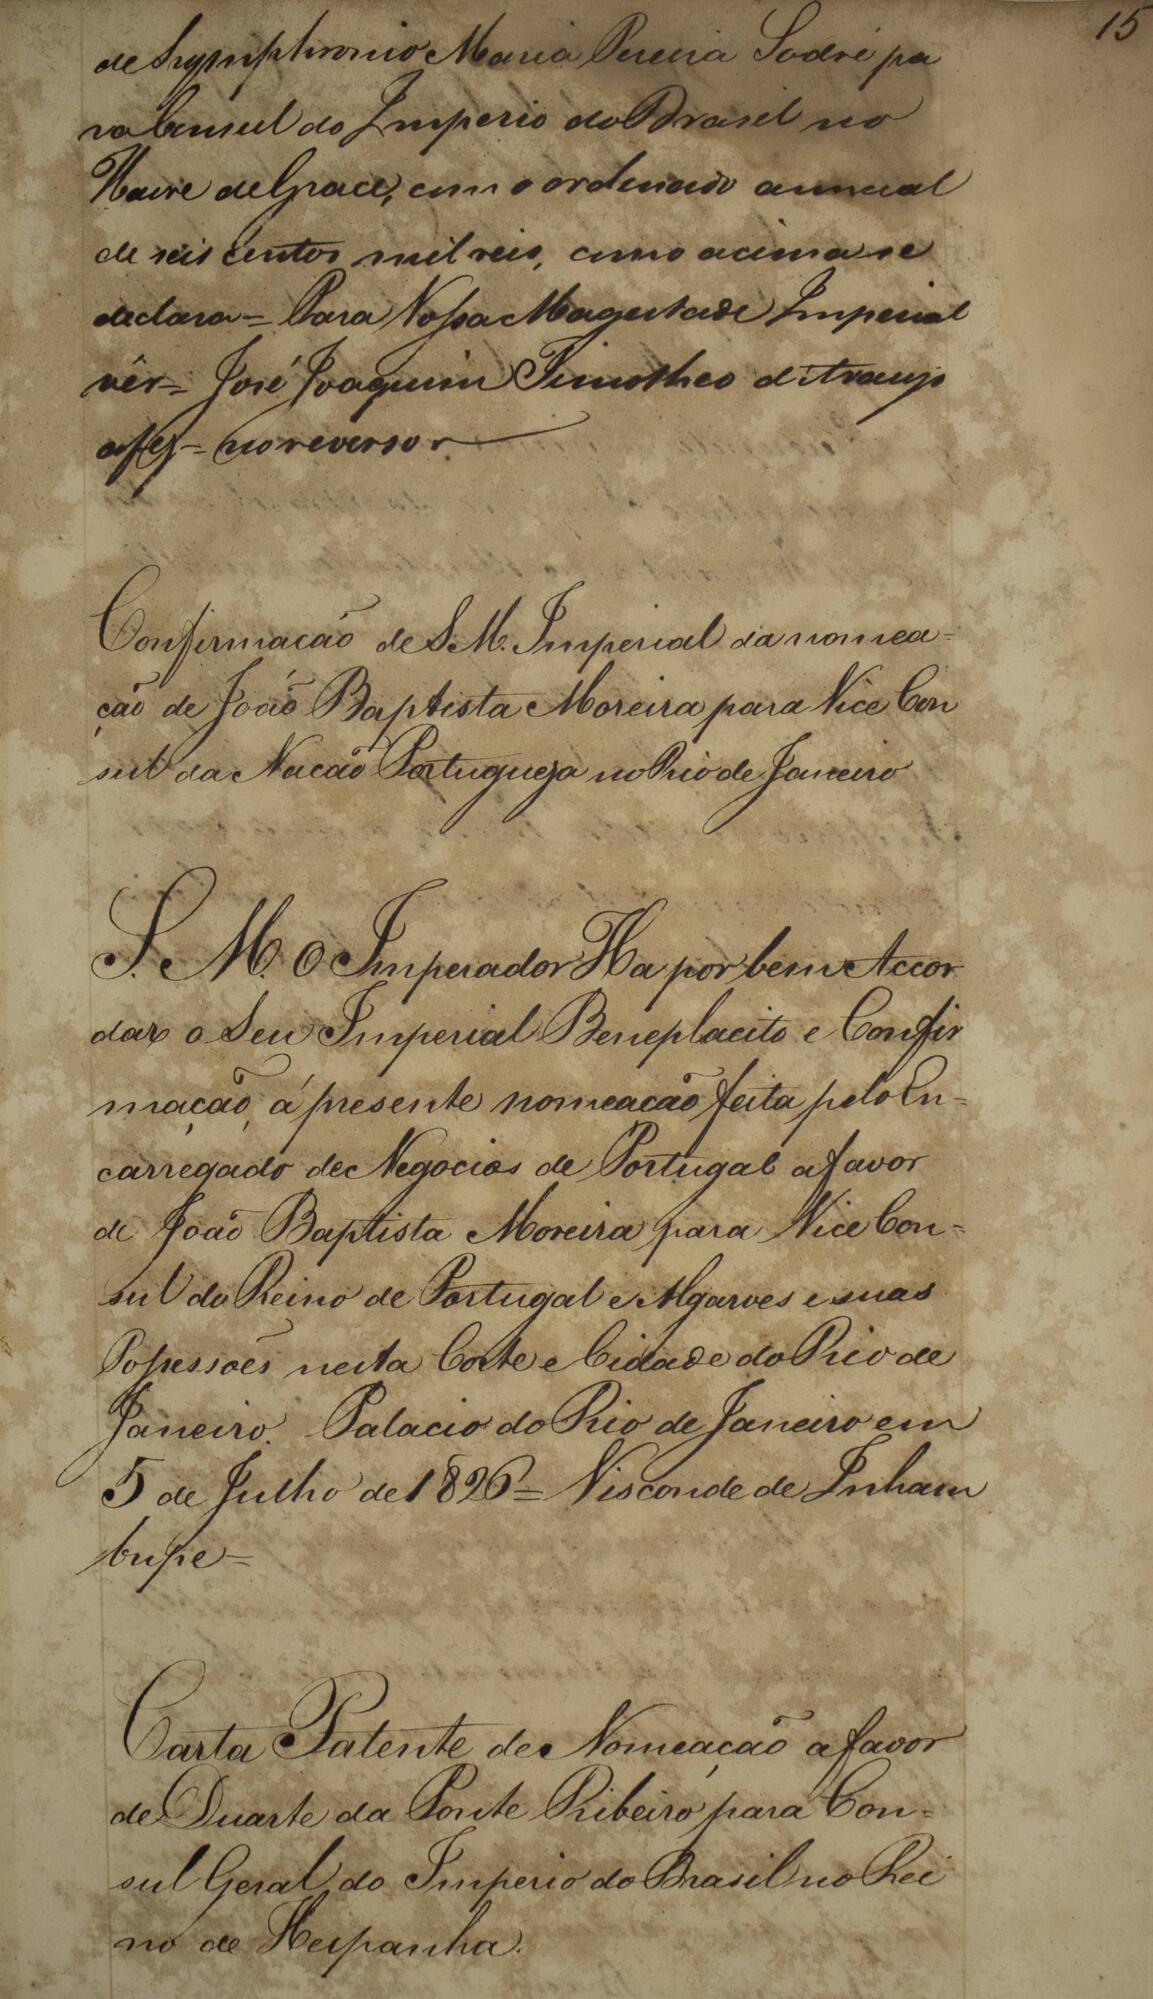 15
de Symphronio Maria Pereira Sodré pa
ra Consul do Imperio do Brasil no
Havre de Grace, com o ordenado annual
de seis centos mil reis, como acima se
declara = Para Vossa Magestade Imperial
vêr = José Joaquim Timotheo d'Araujo
a fez = no reverso
Confirmacão de S. M. Imperial da nomea=
ção de João Baptista Moreira para Vice Con
sul da Nacão Portugueza no Rio de Janeiro
S. M. O Imperador Ha por bem Accor
dar o Seu Imperial Beneplacito e Confir
mação á presente nomeacão feita pelo En=
carregado de Negocios de Portugal a favor
de João Baptista Moreira para Vice Con=
sul do Reino de Portugal e Algarves e suas
Possessoẽs nesta Corte e Cidade do Rio de
Janeiro. Palacio do Rio de Janeiro em
5 de Julho de 1826 = Visconde de Inham
bupe =
Carta Patente de Nomeação a favor
de Duarte da Ponte Ribeiro para Con=
sul Geral do Imperio do Brasil no Rei
no de Hespanha.